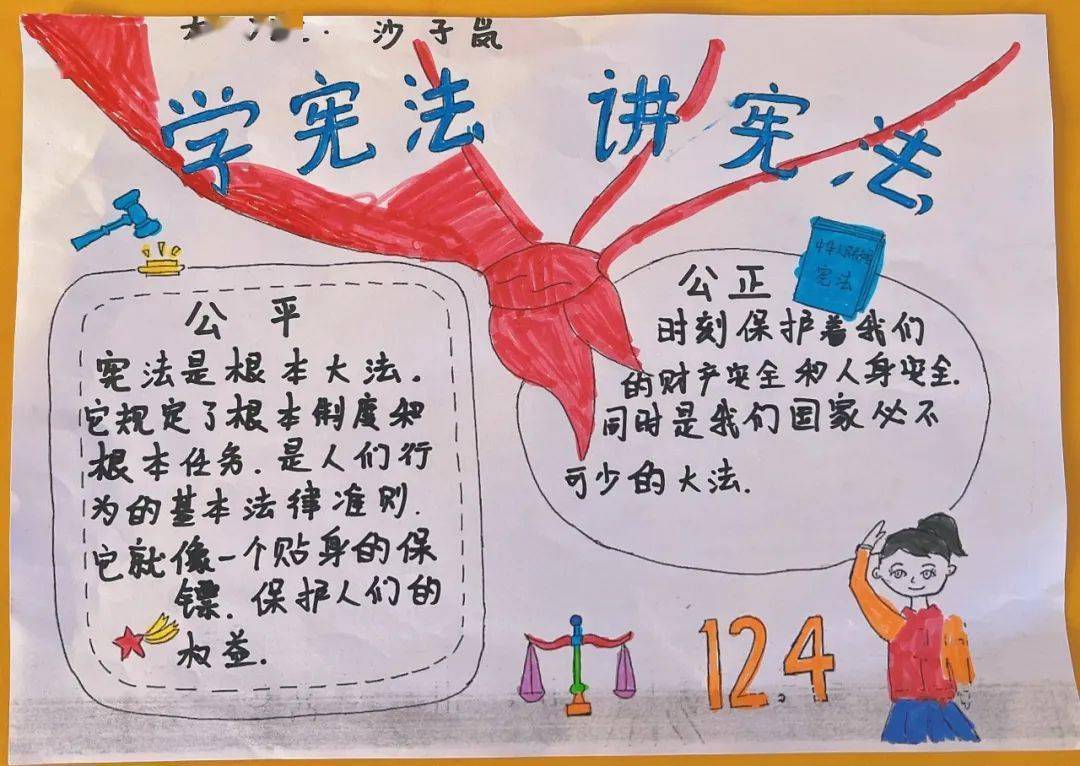 沙子岚
学宪法 讲宪法
公平
宪法是根本大法.
它规定了根本制度和
根本任务.是人们行
为的基本法律准则.
它就像一个贴身的保
镖.保护人们的
权益.
中华人民共和国
宪法
公正
时刻保护着我们
的财产安全和人身安全.
同时是我们国家必不
可少的大法.
12.4